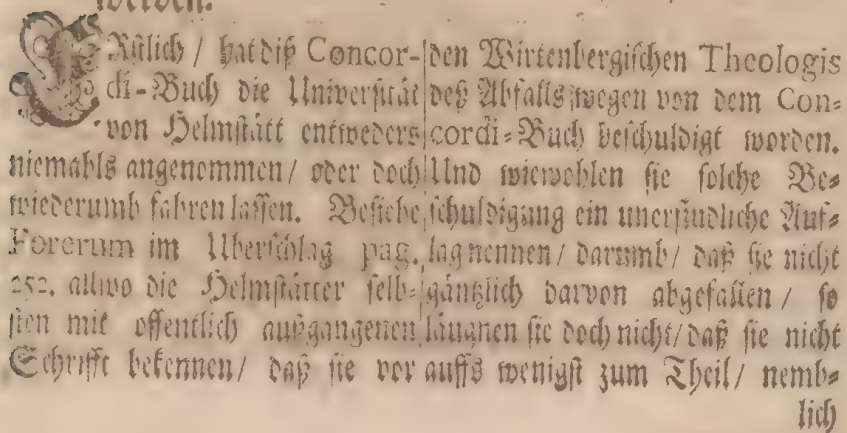 werden.
ERstlich / hat diß Concor-
di-Buch die Universität
von Helmstätt entweders
niemahls angenommen / oder doch
wiederumb fahren lassen. Besiehe
Forerum im Uberschlag pag.
252. allwo die Helmstätter selb-
sten mit offentlich außgangenen
Schrifft bekennen / daß sie vor
den Wirtenbergischen Theologis
deß Abfalls wegen von dem Con-
cordi-Buch beschuldigt worden.
Und wiewohlen sie solche Be-
schuldigung ein unerfindliche Auf-
lag nennen / darumb / daß sie nicht
gäntzlich darvon abgefallen / so
läugnen sie doch nicht / daß sie nicht
auffs wenigst zum Theil / nemb-
lich